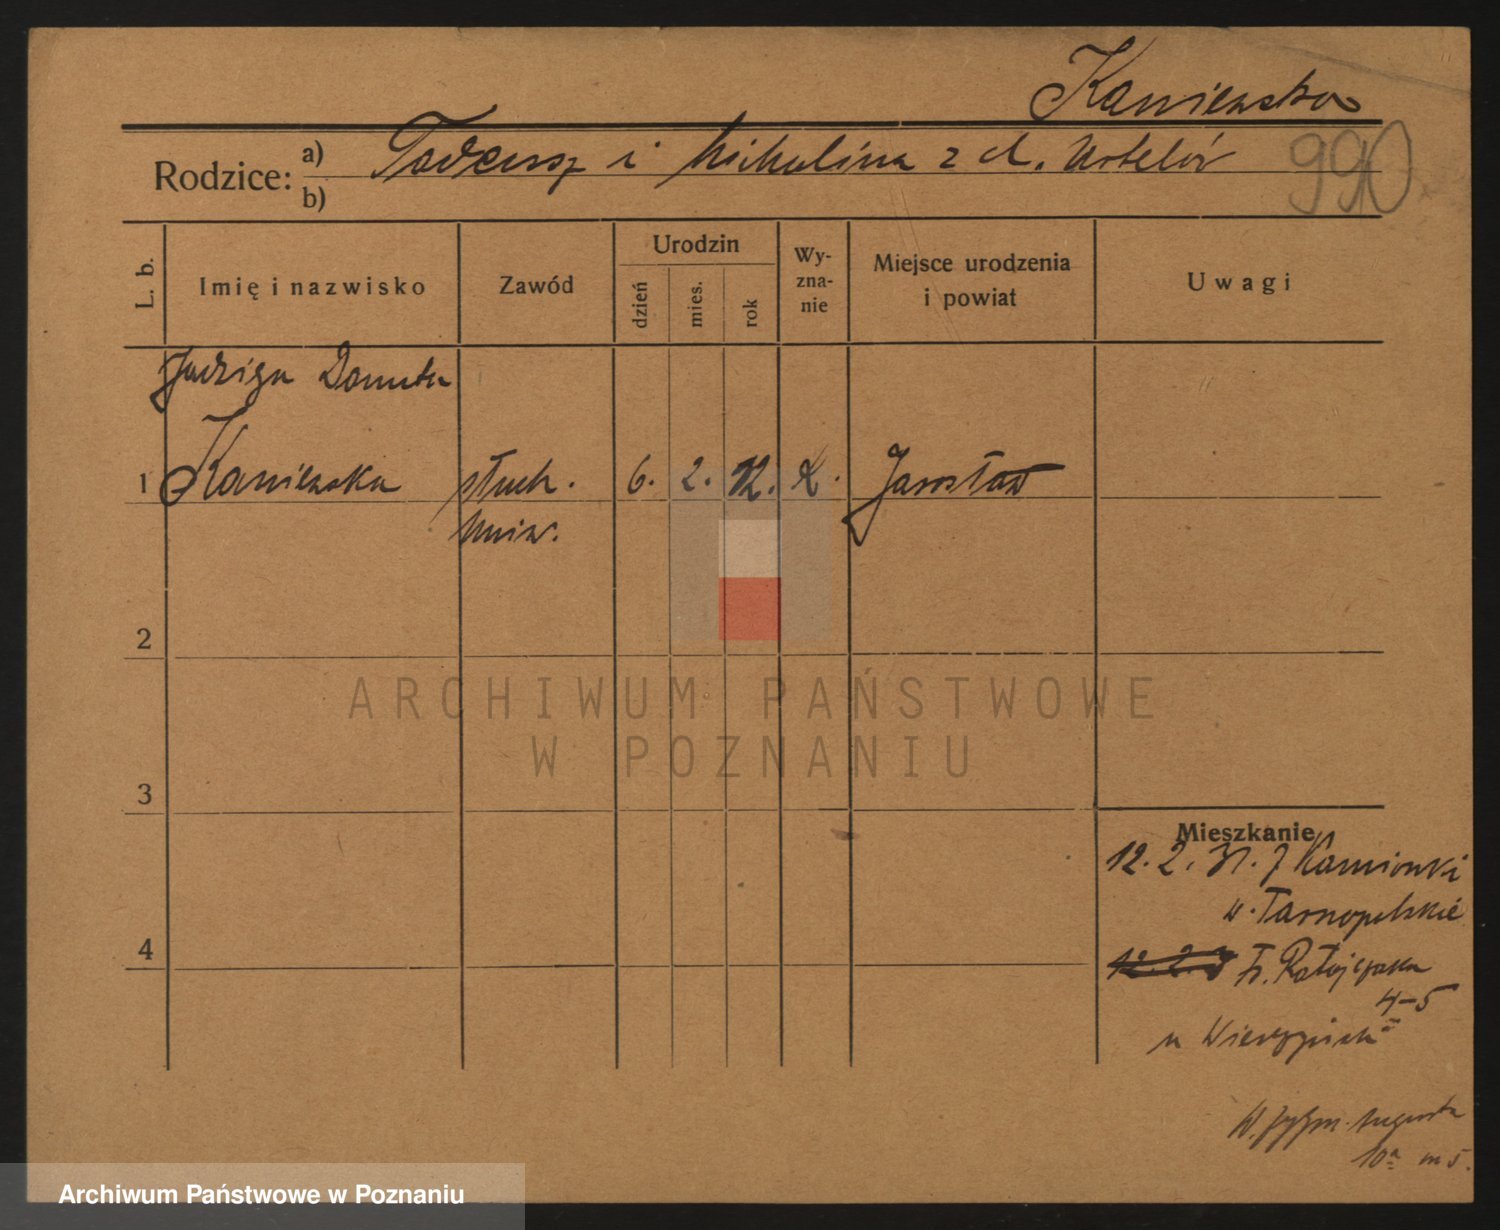 Kaniewska
Rodzice: a) Tadeusz i Michalina z d.
b)
990
L. b.
Imię i nazwisko
Zawód
Urodzin
dzień
mies.
rok
Wy-
zna-
nie
Miejsce urodzenia
i powiat
Uwagi
Jadwiga Danuta
1 Kaniewska słuch. 6. 2. 12. Jarosław
Uniw.
2
3
4
Mieszkanie
12. 2. 31. z Kamionki
w. Tarnopolskie
12. 2. 3 Fr. Ratajczaka
4-5
u
Zygm. Augusta
10a m 5.
ARCHIWUM PAŃSTWOWE
W POZNANIU
Archiwum Państwowe w Poznaniu